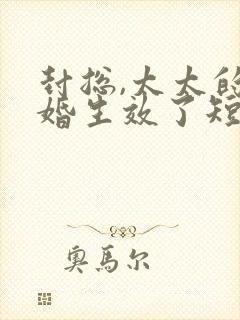 封总,太太的
婚生效了短
奥馬尔